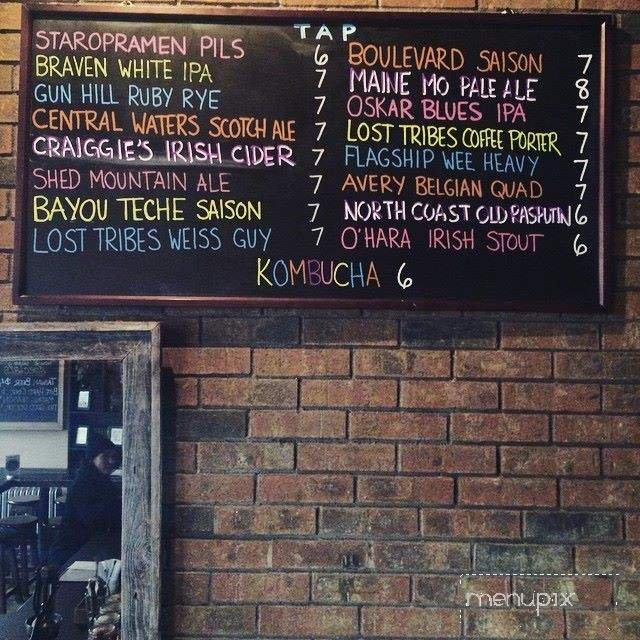 TAP
STAROPRAMEN PILS 6
BRAVEN WHITE IPA 7
GUN HILL RUBY RYE 7
CENTRAL WATERS SCOTCH ALE 7
CRAIGGIE'S IRISH CIDER 7
SHED MOUNTAIN ALE 7
BAYOU TECHE SAISON 7
LOST TRIBES WEISS GUY 7
BOULEVARD SAISON 7
MAINE MO PALE ALE 8
OSKAR BLUES IPA 7
LOST TRIBES COFFEE PORTER 7
FLAGSHIP WEE HEAVY 7
AVERY BELGIAN QUAD 7
NORTH COAST OLD RASPUTIN 6
O'HARA IRISH STOUT 6
KOMBUCHA 6
menupix